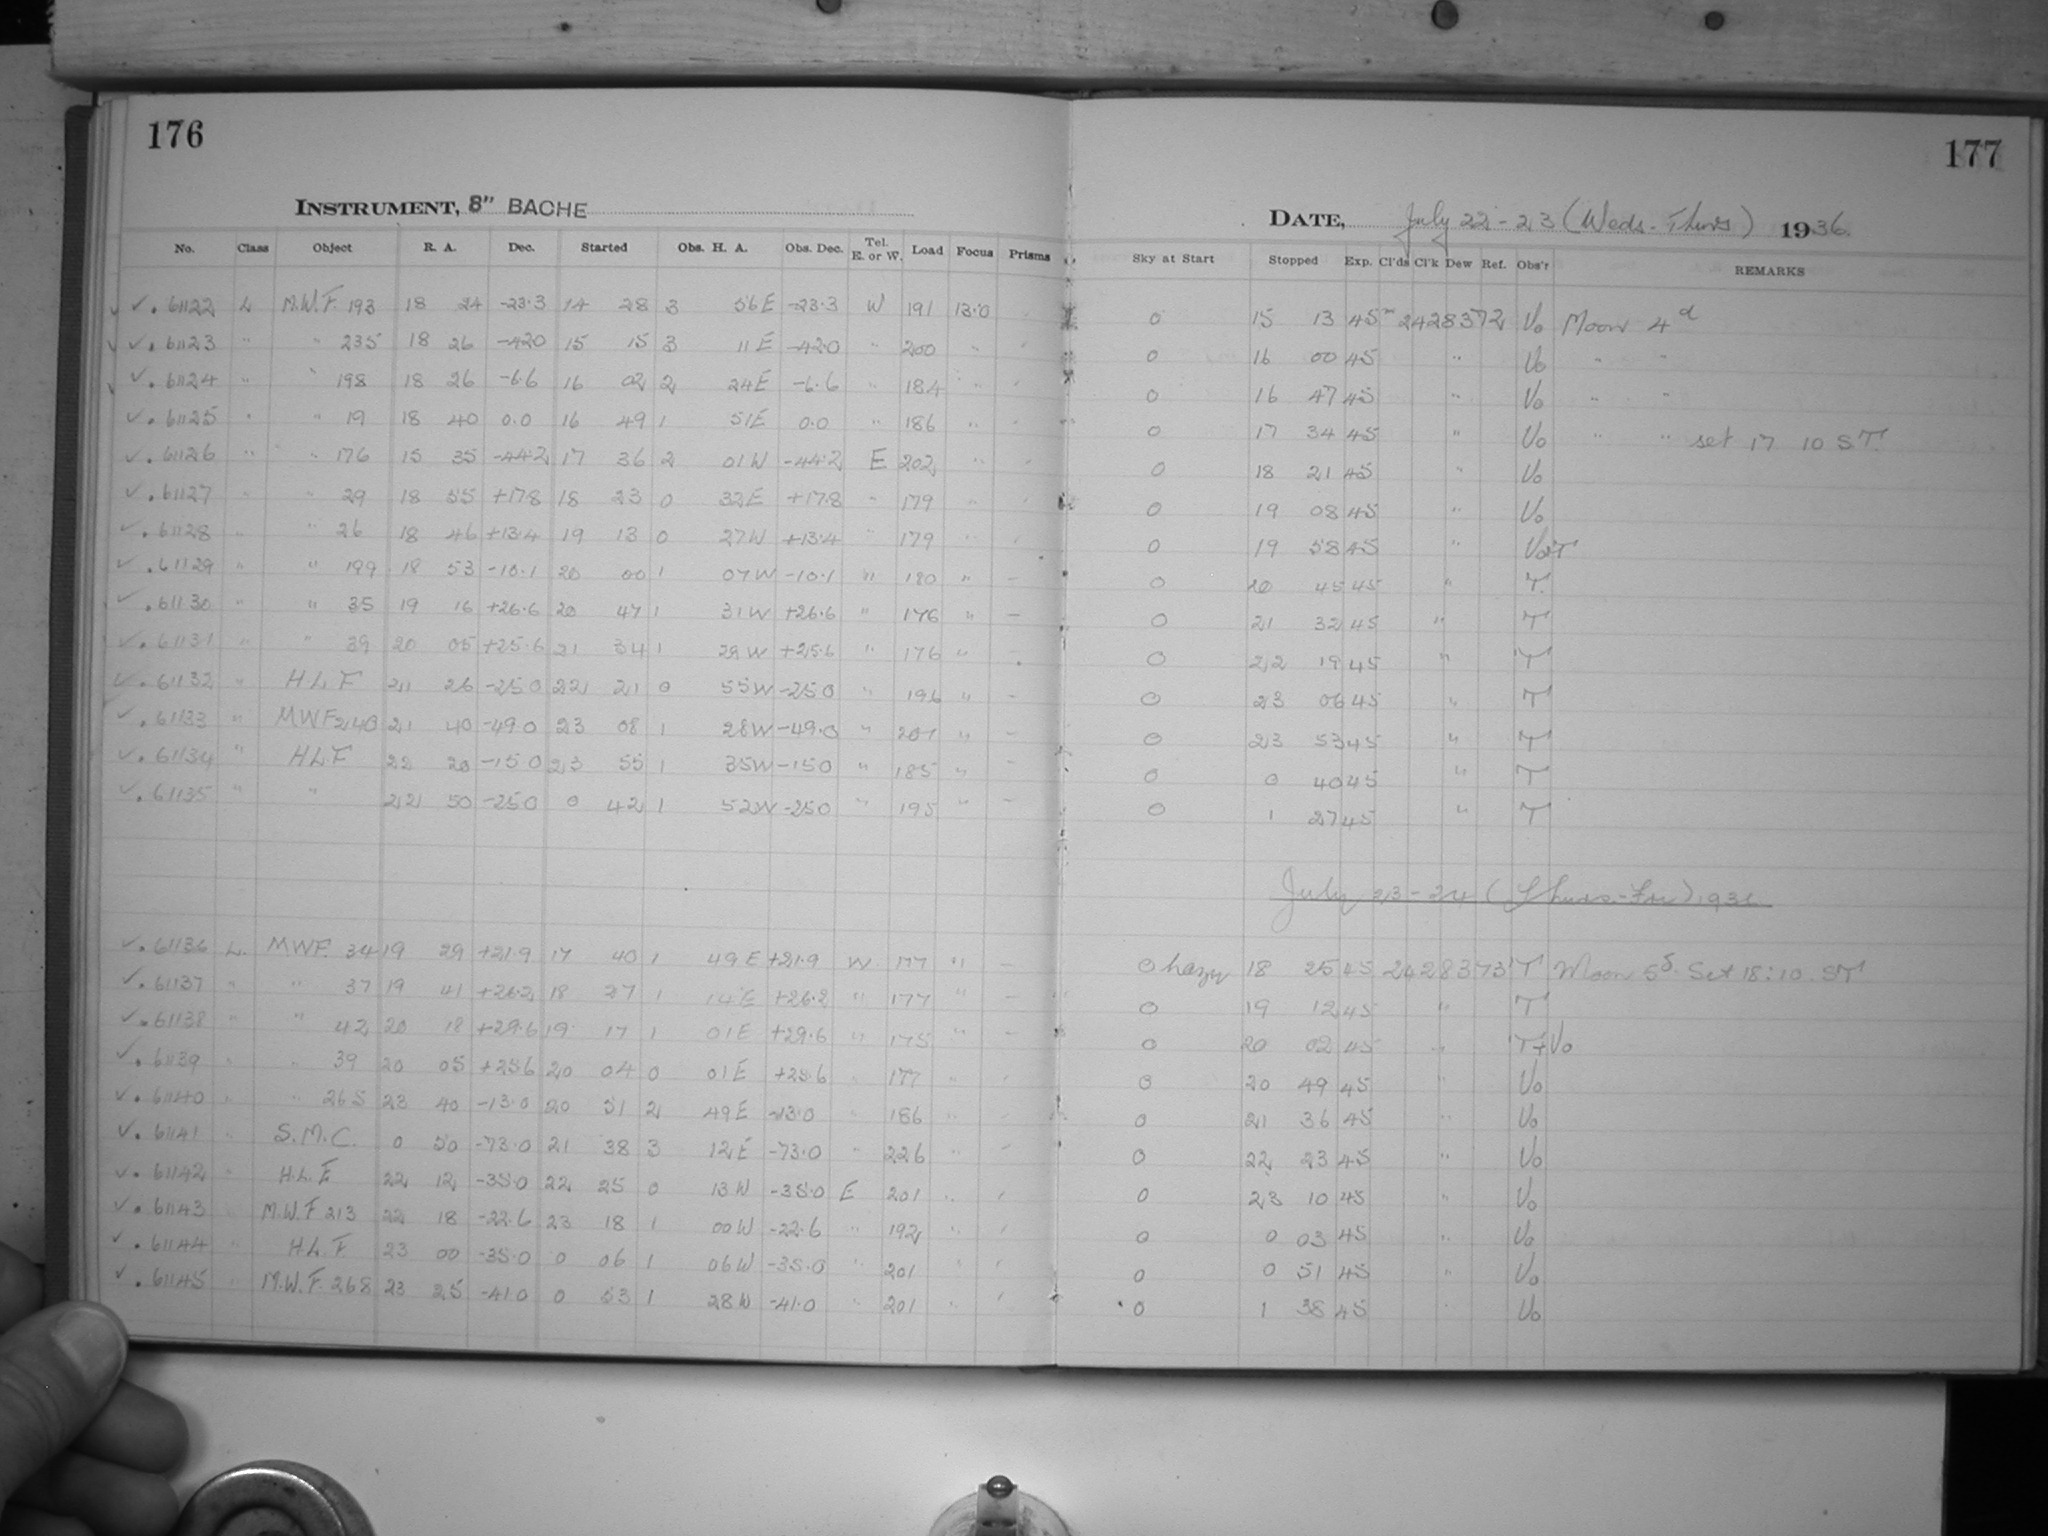 176
INSTRUMENT, 8" BACHE
No. Class Object R. A. Dec. Started Obs. H. A. Obs. Dec. Tel. E. or W. Load Focus Prisms
✓. 61122 L M.W.F. 193 18 24 -23.3 14 28 3 56E -23.3 W 191 13.0
✓. 61123 " " 235 18 26 -42.0 15 15 3 11E -42.0 " 200 "
✓. 61124 " " 198 18 26 -6.6 16 02 2 24E -6.6 " 184 "
✓. 61125 " " 19 18 40 0.0 16 49 1 51E 0.0 " 186 "
✓. 61126 " " 176 15 35 -44.2 17 36 2 01W -44.2 E 202 "
✓. 61127 " " 29 18 55 +17.8 18 23 0 32E +17.8 " 179 "
✓. 61128 " " 26 18 46 +13.4 19 13 0 27W +13.4 " 179 "
✓. 61129 " " 199 18 53 -10.1 20 00 1 07W -10.1 " 180 " -
✓. 61130 " " 35 19 16 +26.6 20 47 1 31W +26.6 " 176 " -
✓. 61131 " " 39 20 05 +25.6 21 34 1 29W +25.6 " 176 " -
✓. 61132 " H L F 21 26 -25.0 22 21 0 55W -25.0 " 196 " -
✓. 61133 " MWF 240 21 40 -49.0 23 08 1 28W -49.0 " 207 " -
✓. 61134 " HLF 22 20 -15.0 23 55 1 35W -15.0 " 185 " -
✓. 61135 " " 22 50 -25.0 0 42 1 52W -25.0 " 195 " -
✓. 61136 L. MWF. 34 19 29 +21.9 17 40 1 49E +21.9 W 177 " -
✓. 61137 " " 37 19 41 +26.2 18 27 1 14E +26.2 " 177 " -
✓. 61138 " " 42 20 18 +29.6 19 17 1 01E +29.6 " 175 " -
✓. 61139 " " 39 20 05 +25.6 20 04 0 01E +25.6 " 177 "
✓. 61140 " " 265 23 40 -13.0 20 51 2 49E -13.0 " 186 "
✓. 61141 " S.M.C. 0 50 -73.0 21 38 3 12E -73.0 " 226 "
✓. 61142 " H.L.F 22 12 -35.0 22 25 0 13W -35.0 E 201 "
✓. 61143 M.W.F 213 22 18 -22.6 23 18 1 00W -22.6 " 192 "
✓. 61144 " H.L.F 23 00 -35.0 0 06 1 06W -35.0 " 201 "
✓. 61145 " M.W.F. 268 23 25 -41.0 0 53 1 28W -41.0 " 201 "
177
DATE, July 22-23 (Weds-Thurs) 1936.
Sky at Start Stopped Exp. Cl'ds Cl'k Dew Ref. Obs'r REMARKS
0 15 13 45m 2428372 Vo Moon 4d
0 16 00 45 " Vo " "
0 16 47 45 " Vo " "
0 17 34 45 " Vo " " set 17 10 ST.
0 18 21 45 " Vo
0 19 08 45 " Vo
0 19 58 45 " Vo+T
0 20 45 45 " T.
0 21 32 45 " T
0 22 19 45 " T
0 23 06 45 " T
0 23 53 45 " T
0 0 40 45 " T
0 1 27 45 " T
July 23-24 (Thurs-Fri) 1936
0 hazy 18 25 45 2428373 T Moon 5d. Set 18:10 ST
0 19 12 45 " T
0 20 02 45 " T+Vo
0 20 49 45 " Vo
0 21 36 45 " Vo
0 22 23 45 " Vo
0 23 10 45 " Vo
0 0 03 45 " Vo
0 0 51 45 " Vo
0 1 38 45 Vo